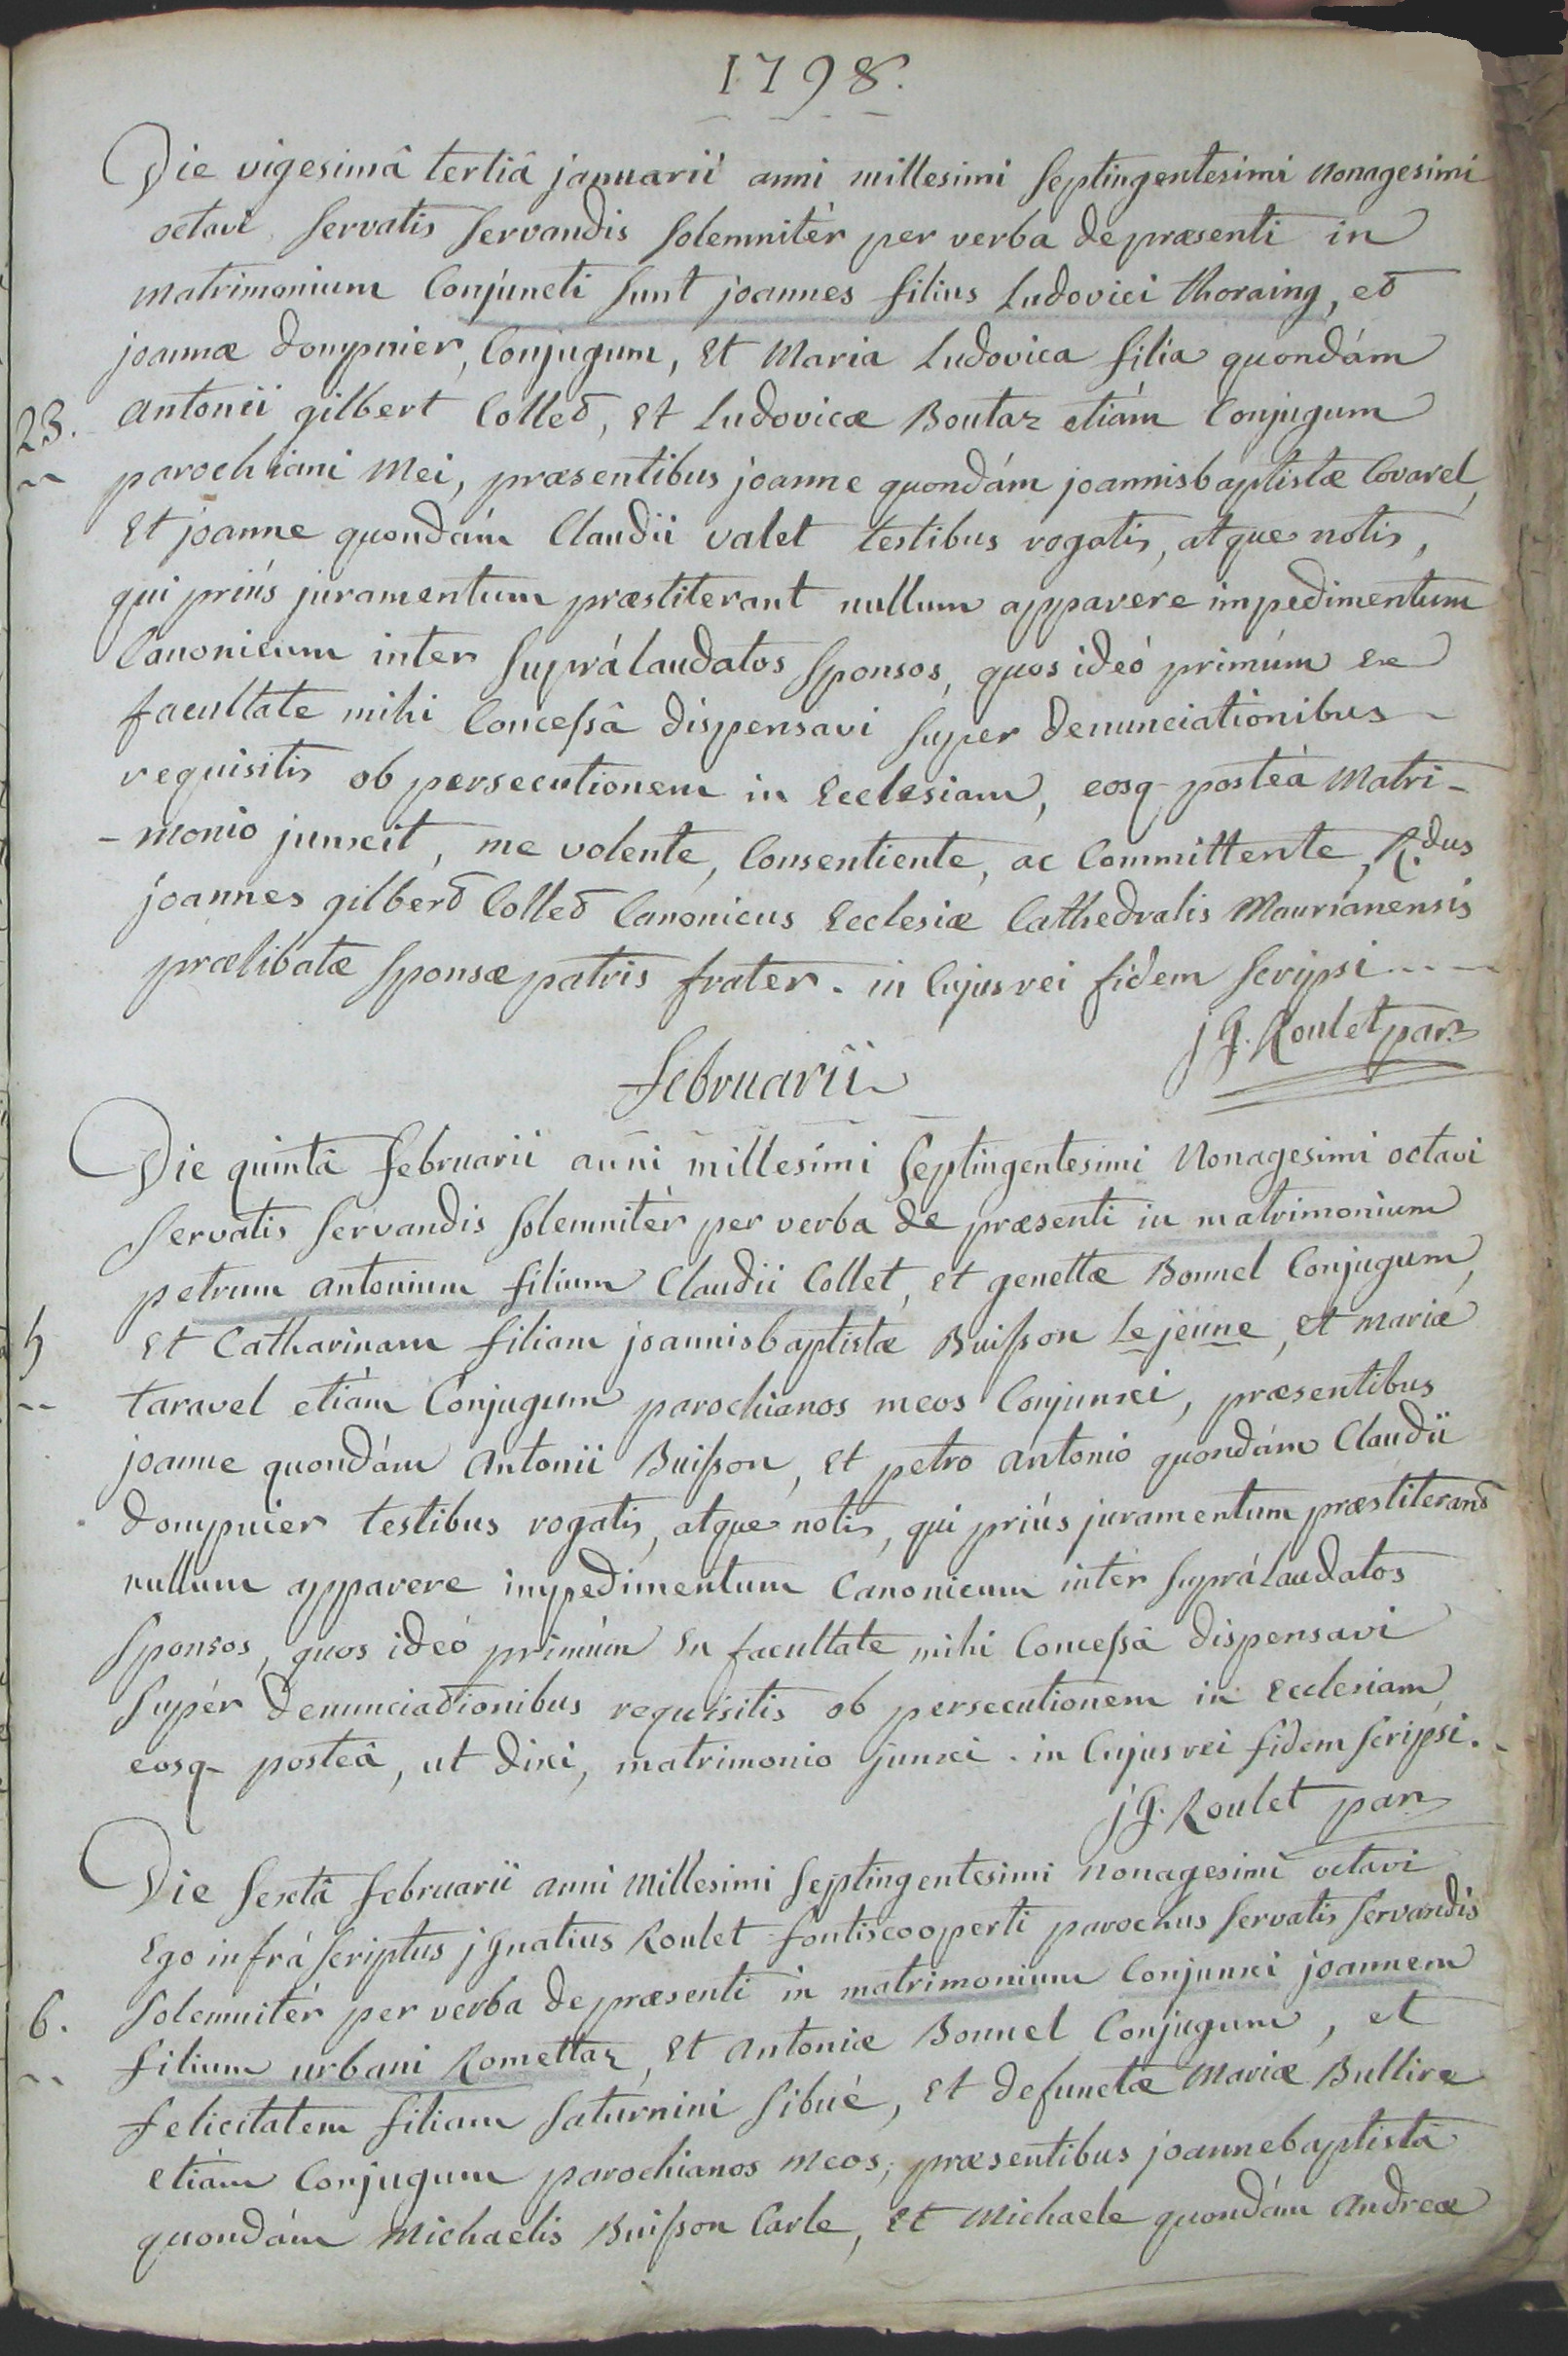 1798.
Die vigesimâ tertiâ januarii anni millesimi Septingentesimi nonagesimi
octavi, Servatis Servandis Solemnitèr per verba de præsenti in
matrimonium Conjuncti Sunt joannes filius Ludovici thoraing, et
joannæ dompnier, Conjugum, Et Maria Ludovica filia quondám
antonii gilbert Collet, Et Ludovicæ Boutaz etiám Conjugum
23.
parochiani Mei, præsentibus joanne quondám joannisbaptistæ Covarel,
Et joanne quondám Claudii valet testibus rogatis, atque notis,
qui priùs juramentum præstiterant nullum apparere impedimentum
Canonicum inter Suprálaudatos Sponsos, quos ideó primúm ex
facultate mihi Concessâ dispensavi Super denunciationibus
requisitis ob persecutionem in Ecclesiam, eosq posteà Matri-
-monio junxit, me volente, Consentiente, ac Committente, R.dus
joannes gilbert Collet Canonicus Ecclesiæ Cathedralis Maurianensis
prælibatæ Sponsæ patris frater. in Cujus rei fidem Scripsi....
jG. Roulet par.
februarii
Die quintâ februarii anni millesimi Septingentesimi Nonagesimi octavi
Servatis Servandis Solemnitèr per verba de præsenti in matrimonium
petrum antonium filium Claudii Collet, et genettæ Bonnel Conjugum,
5
Et Catharinam filiam joannisbaptistæ Buisson Le jeune, Et mariæ
taravel etiám Conjugum parochianos meos Conjunxi, præsentibus
joanne quondám Antonii Buisson, Et petro antonio quondám Claudii
dompnier testibus rogatis, atque notis, qui priùs juramentum præstiterant
nullum apparere impedimentum Canonicum inter Suprálaudatos
Sponsos, quos ideó primúm Ex facultate mihi Concessâ dispensavi
Supèr denunciationibus requisitis ob persecutionem in Ecclesiam,
eosq posteâ, ut dixi, matrimonio junxi. in Cujus rei fidem Scripsi.
jG. Roulet par
Die Sextâ februarii anni Millesimi Septingentesimi nonagesimi octavi
Ego infrá Scriptus jGnatius Roulet fontiscooperti parochus Servatis Servandis
6.
Solemnitèr per verba de præsenti in matrimonium Conjunxi joannem
filium urbani Romettaz, Et antoniæ Bonnel Conjugum, et
felicitatem filiam Saturnini Sibué, Et defunctæ Mariæ Bullire
etiám Conjugum parochianos meos, præsentibus joannebaptistâ
quondám Michaelis Buisson Carle, Et Michaele quondám andreæ